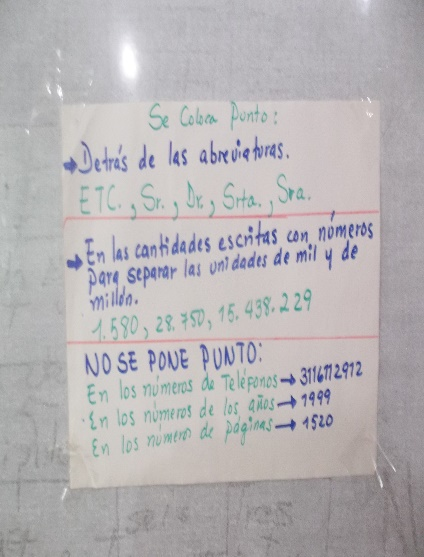 Se Coloca Punto:
→ Detrás de las abreviaturas.
ETC., Sr., Dr., Srta., Sra.
→ En las cantidades escritas con números
para separar las unidades de mil y de
millón.
1.580, 28.750, 15.438.229
NO SE PONE PUNTO:
En los números de Teléfonos → 3116712912
· En los números de los años → 1999
En los números de páginas → 1520